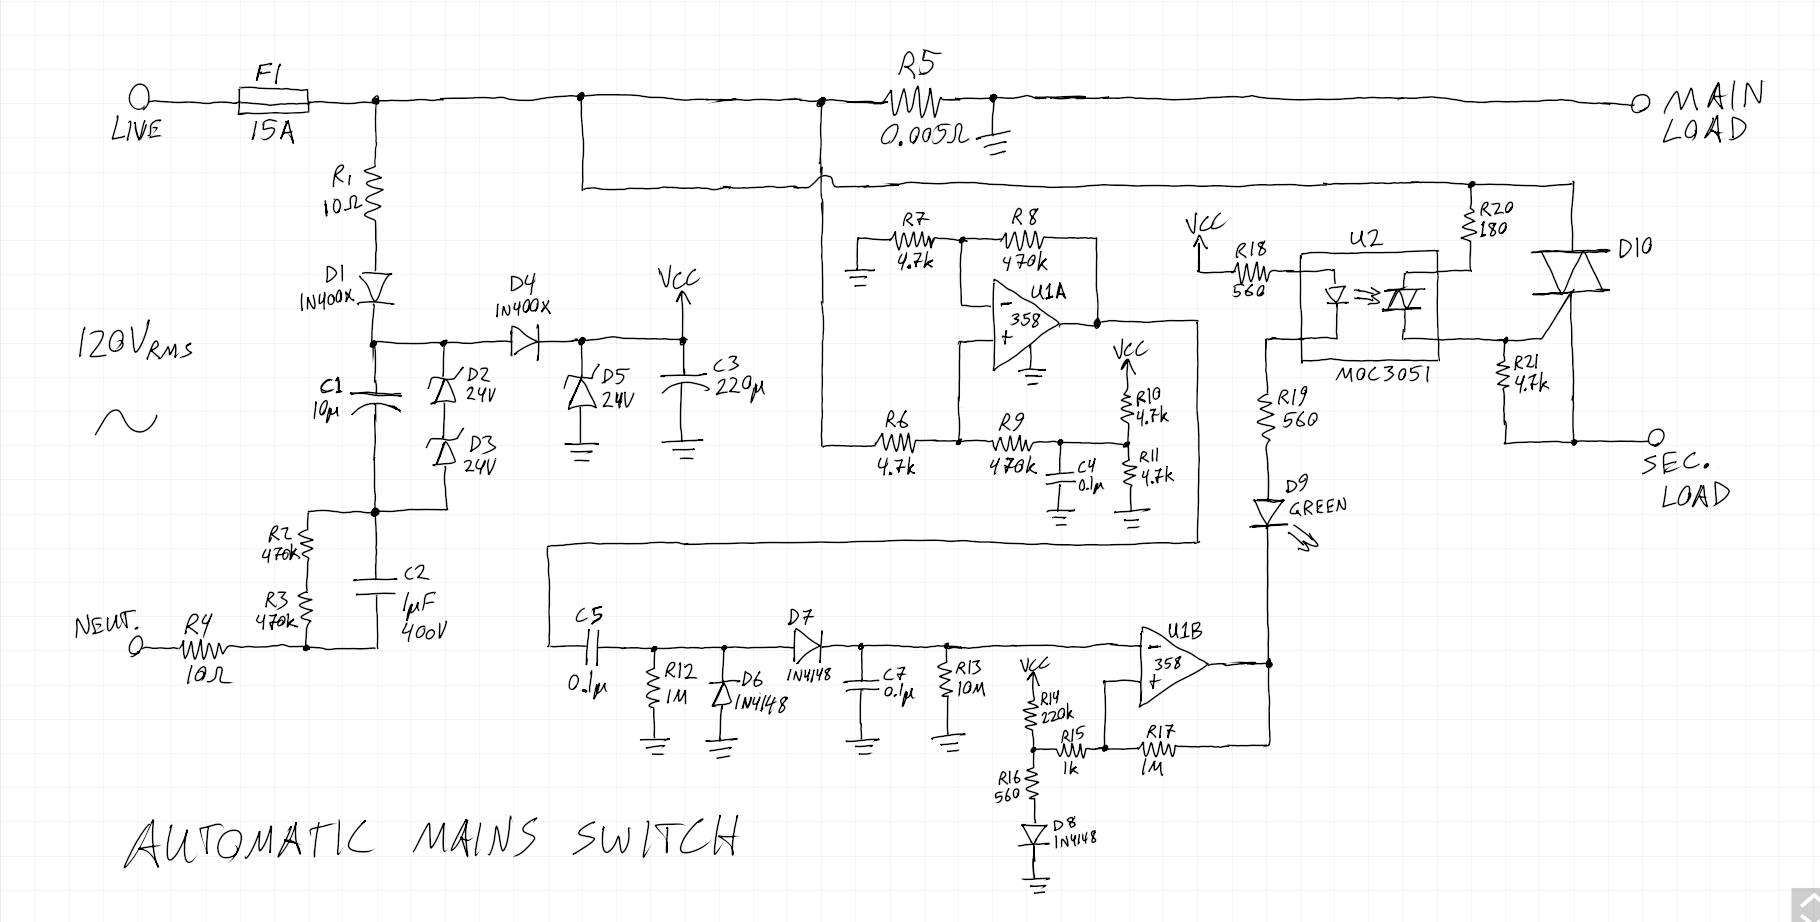 F1
15A
LIVE
R5
0.005Ω
MAIN
LOAD
R1
10Ω
D1
1N400X
D4
1N400X
VCC
120VRMS
C1
10µ
D2
24V
D3
24V
D5
24V
C3
220µ
R7
4.7k
R8
470k
U1A
-
358
+
R6
4.7k
R9
470k
C4
0.1µ
VCC
R10
4.7k
R11
4.7k
VCC
R18
560
U2
MOC3051
R20
180
D10
R21
4.7k
R19
560
D9
GREEN
SEC.
LOAD
R2
470k
R3
470k
C2
1µF
400V
NEUT.
R4
10Ω
C5
0.1µ
R12
1M
D6
1N4148
D7
1N4148
C7
0.1µ
R13
10M
VCC
R14
220k
R15
1k
R16
560
D8
1N4148
R17
1M
U1B
-
358
+
AUTOMATIC MAINS SWITCH